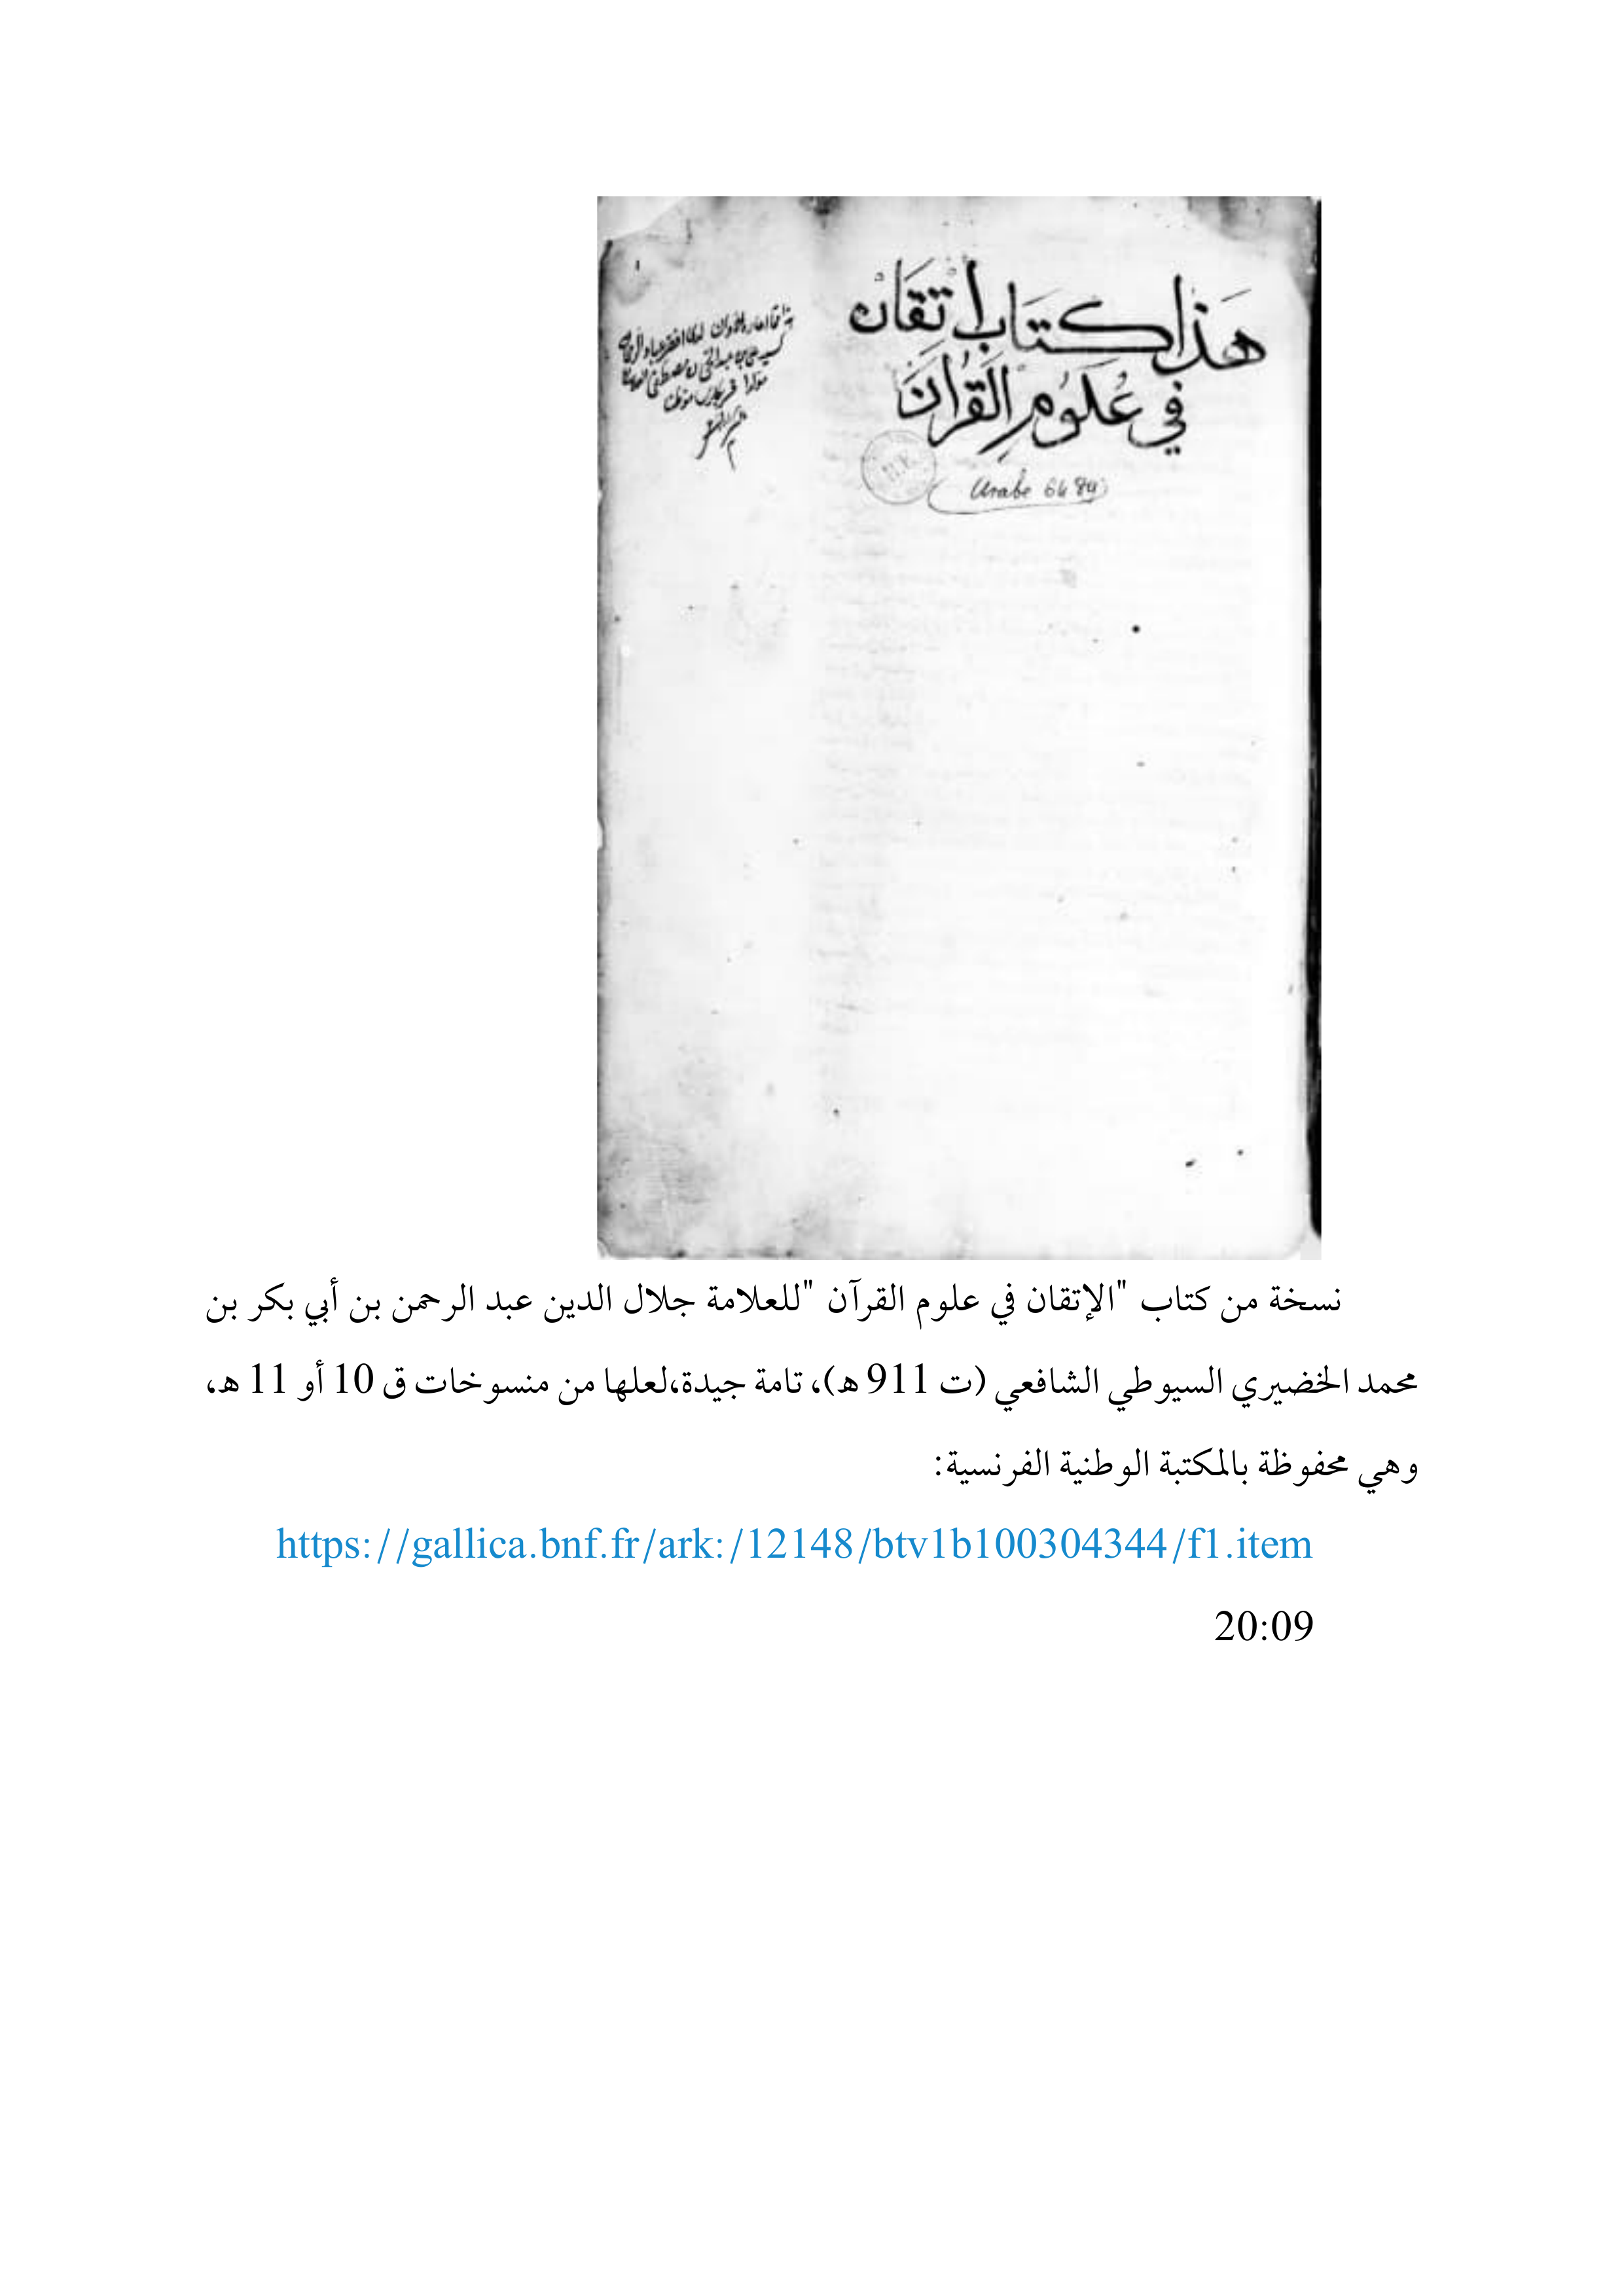 هَذا كتَاب اتقَان
في عُلَوُمِ القُرانَ
Arabe 6484
نسخة من كتاب "الإتقان في علوم القرآن "للعلامة جلال الدين عبد الرحمن بن أبي بكر بن
محمد الخضيري السيوطي الشافعي (ت 911 هـ)، تامة جيدة،لعلها من منسوخات ق 10 أو 11 هـ،
وهي محفوظة بالمكتبة الوطنية الفرنسية:
https://gallica.bnf.fr/ark:/12148/btv1b100304344/f1.item
20:09